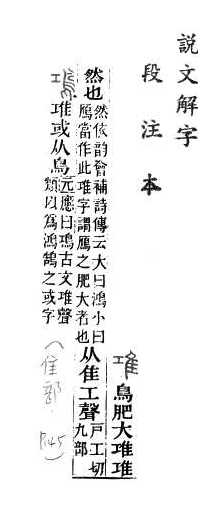 說文解字
段注本
䧺 鳥肥大䧺䧺
然也然依韵會補詩傳云大曰鴻小曰
鴈當作此䧺字謂鴈之肥大者也从隹工聲戶工切
九部
䧺或从鳥元應曰鳿古文䧺聲
類以爲鴻鵠之或字
（隹部．
P.145）